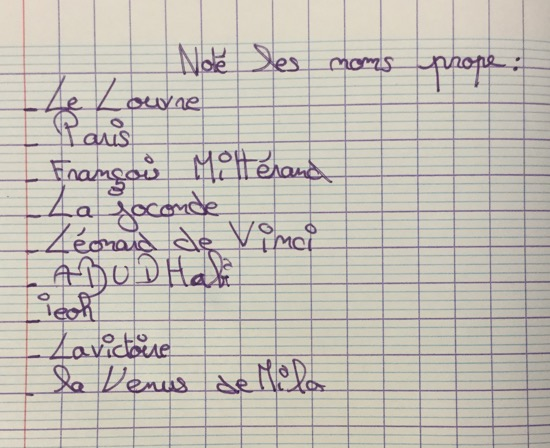 Noté les noms prope :
- Le Louvre
- Paris
- François Mittérand
- La joconde
- Léonard de Vinci
- ABUDHabi
- ieoh
- Lavictoire
- la Venus de Milo